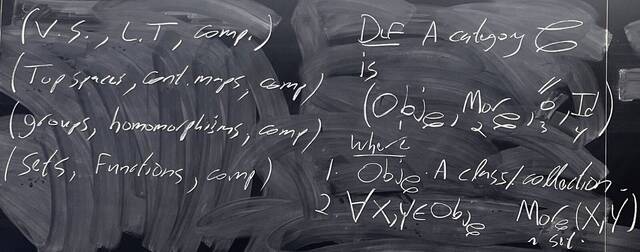 (V.S., L.T, comp.)
(Top spaces, cont. maps, comp)
(groups, homomorphisms, comp)
(Sets, Functions, comp)
Def A category 𝒞
is
(Obj𝒞, Mor𝒞, ∘, Id)
1 2 3 4
where
1. Obj𝒞. A class/collection.
2 ∀X,Y∈Obj𝒞 Mor𝒞(X,Y)
a set.